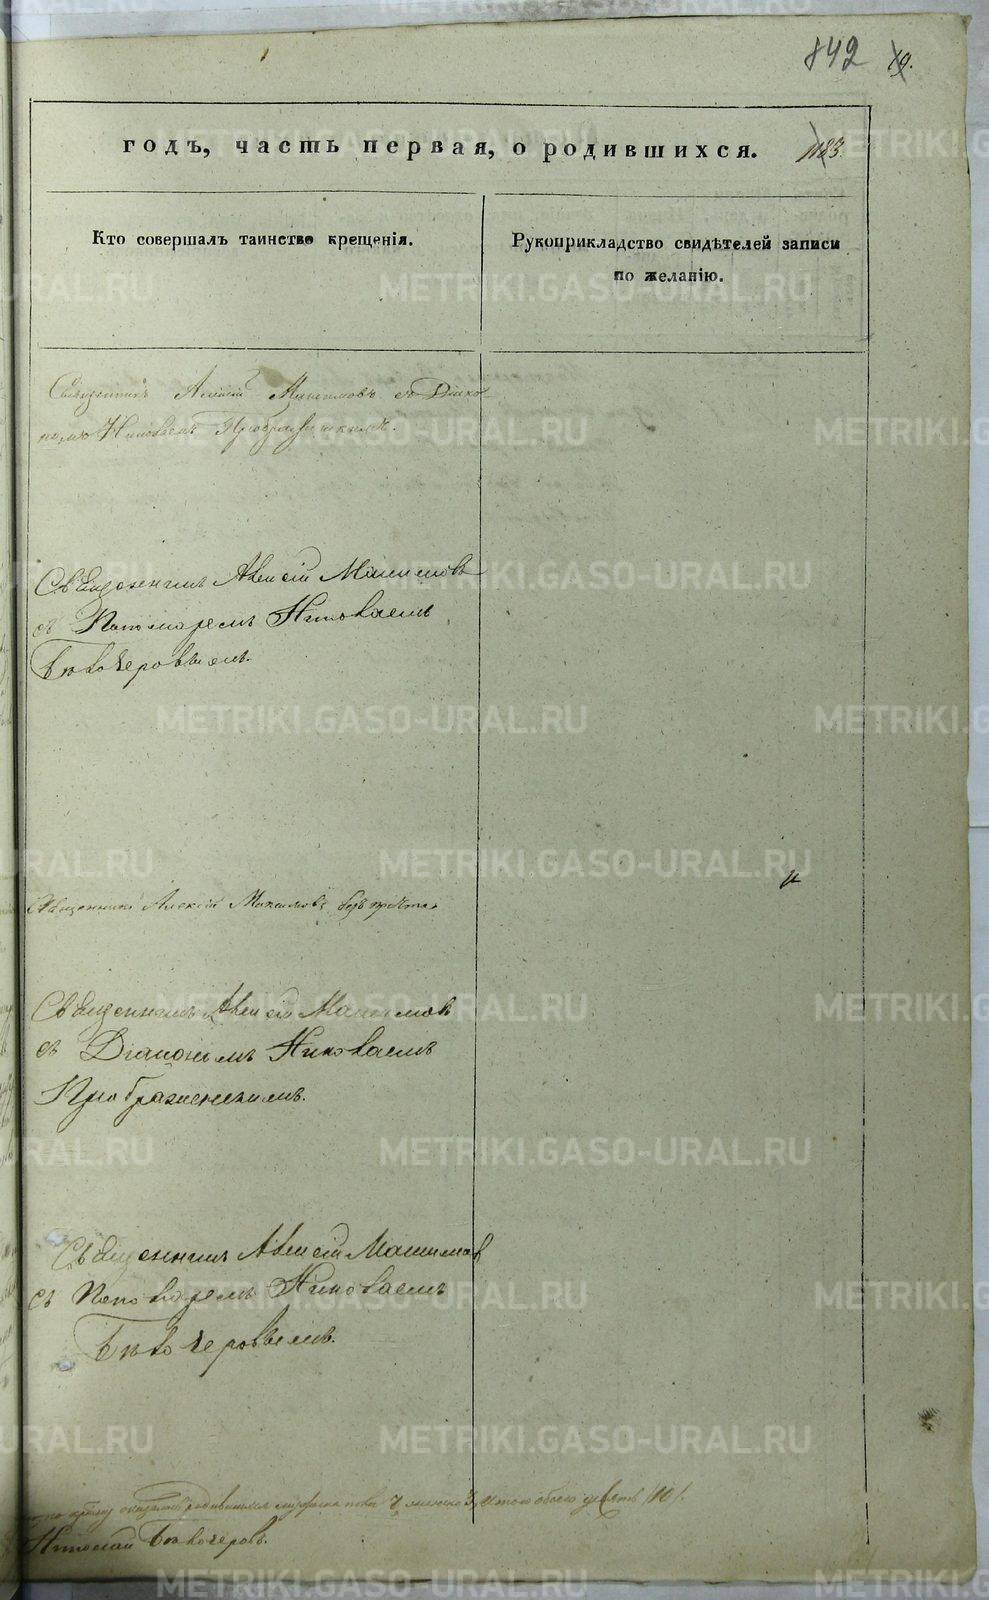 842 19.
годъ, часть первая, о родившихся. 1183.
Кто совершалъ таинство крещенія.
Рукоприкладство свидѣтелей записи
по желанію.
Священникъ Алексій Максимовъ съ Діако
номъ Николаемъ Преображенскимъ.
Священникъ Алексій Максимовъ
съ Пономаремъ Николаемъ
Бѣлочеровымъ.
Священникъ Алексій Максимовъ безъ причта
Священникъ Алексій Максимовъ
съ Діакономъ Николаемъ
Преображенскимъ.
Священникъ Алексій Максимовъ
съ Пономаремъ Николаемъ
Бѣлочеровымъ.
родившихся мужеска пола женска итого обоего
Николай Бѣлочеровъ.
METRIKI.GASO-URAL.RU